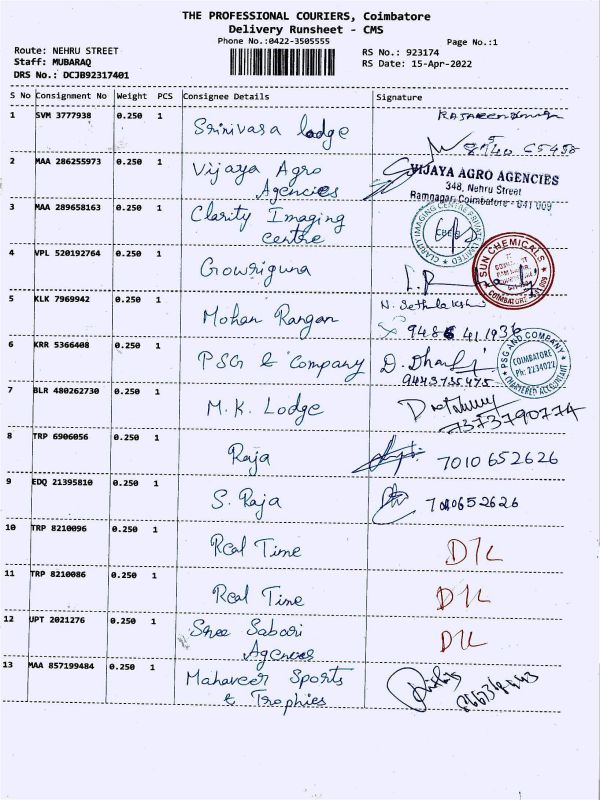 THE PROFESSIONAL COURIERS, Coimbatore
Delivery Runsheet - CMS
Phone No.:0422-3505555
Page No.:1
Route: NEHRU STREET
RS No.: 923174
Staff: MUBARAQ
RS Date: 15-Apr-2022
DRS No.: DCJB92317401
S No Consignment No Weight PCS Consignee Details Signature
1 SVM 3777938 0.250 1
Srinivasa lodge
2 MAA 286255973 0.250 1
Vijaya Agro
Agencies
VIJAYA AGRO AGENCIES
348, Nehru Street
Ramnagar, Coimbatore - 641 009
3 MAA 289658163 0.250 1
Clarity Imaging
centre
CLARITY IMAGING CENTRE PRIVATE LIMITED
4 VPL 520192764 0.250 1
Gowriguna
SUN CHEMICALS
COIMBATORE
5 KLK 7969942 0.250 1
Mohan Rangan
N. Sethulakshmi
6 KRR 5366408 0.250 1
PSG & Company
PSG AND COMPANY
COIMBATORE
Ph: 2234022
CHARTERED ACCOUNTANT
9443735475
7 BLR 480262730 0.250 1
M.K. Lodge
7373790774
8 TRP 6906056 0.250 1
Raja
7010 652626
9 EDQ 21395810 0.250 1
S. Raja
7010652626
10 TRP 8210096 0.250 1
Real Time
D/L
11 TRP 8210086 0.250 1
Real Time
D/L
12 UPT 2021276 0.250 1
Sree Sabari
Agencies
D/L
13 MAA 857199484 0.250 1
Mahaveer Sports
& Trophies